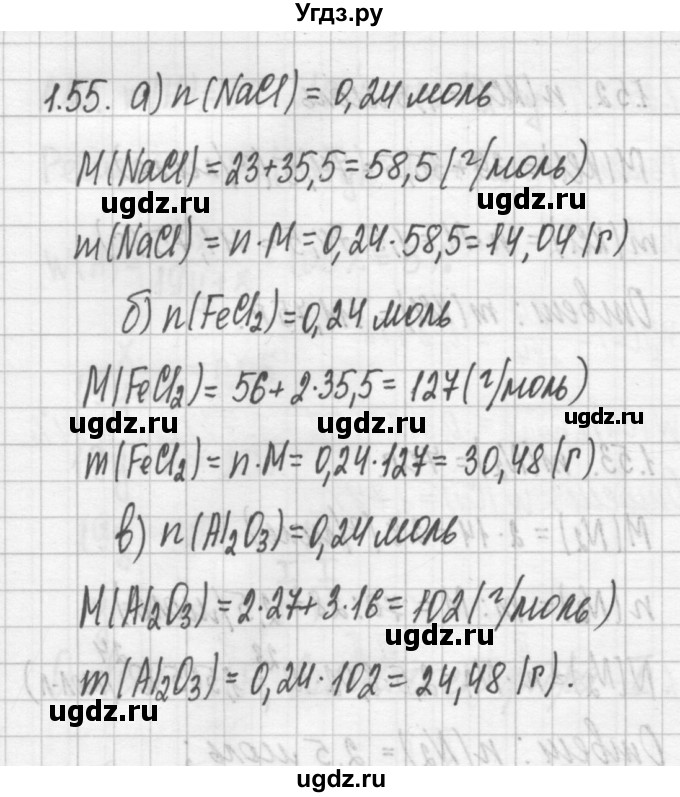 Угдз.ру
1.55. а) n(NaCl) = 0,24 моль
M(NaCl) = 23+35,5 = 58,5 (г/моль)
ugdz.ru ugdz.ru
m(NaCl) = n·M = 0,24·58,5 = 14,04 (г)
б) n(FeCl₂) = 0,24 моль
M(FeCl₂) = 56 + 2·35,5 = 127 (г/моль)
ugdz.ru ugdz.ru ugdz.ru
m(FeCl₂) = n·M = 0,24·127 = 30,48 (г)
в) n(Al₂O₃) = 0,24 моль
M(Al₂O₃) = 2·27+3·16 = 102 (г/моль)
ugdz.ru
m(Al₂O₃) = 0,24·102 = 24,48 (г).
ugdz.ru
ugdz.ru